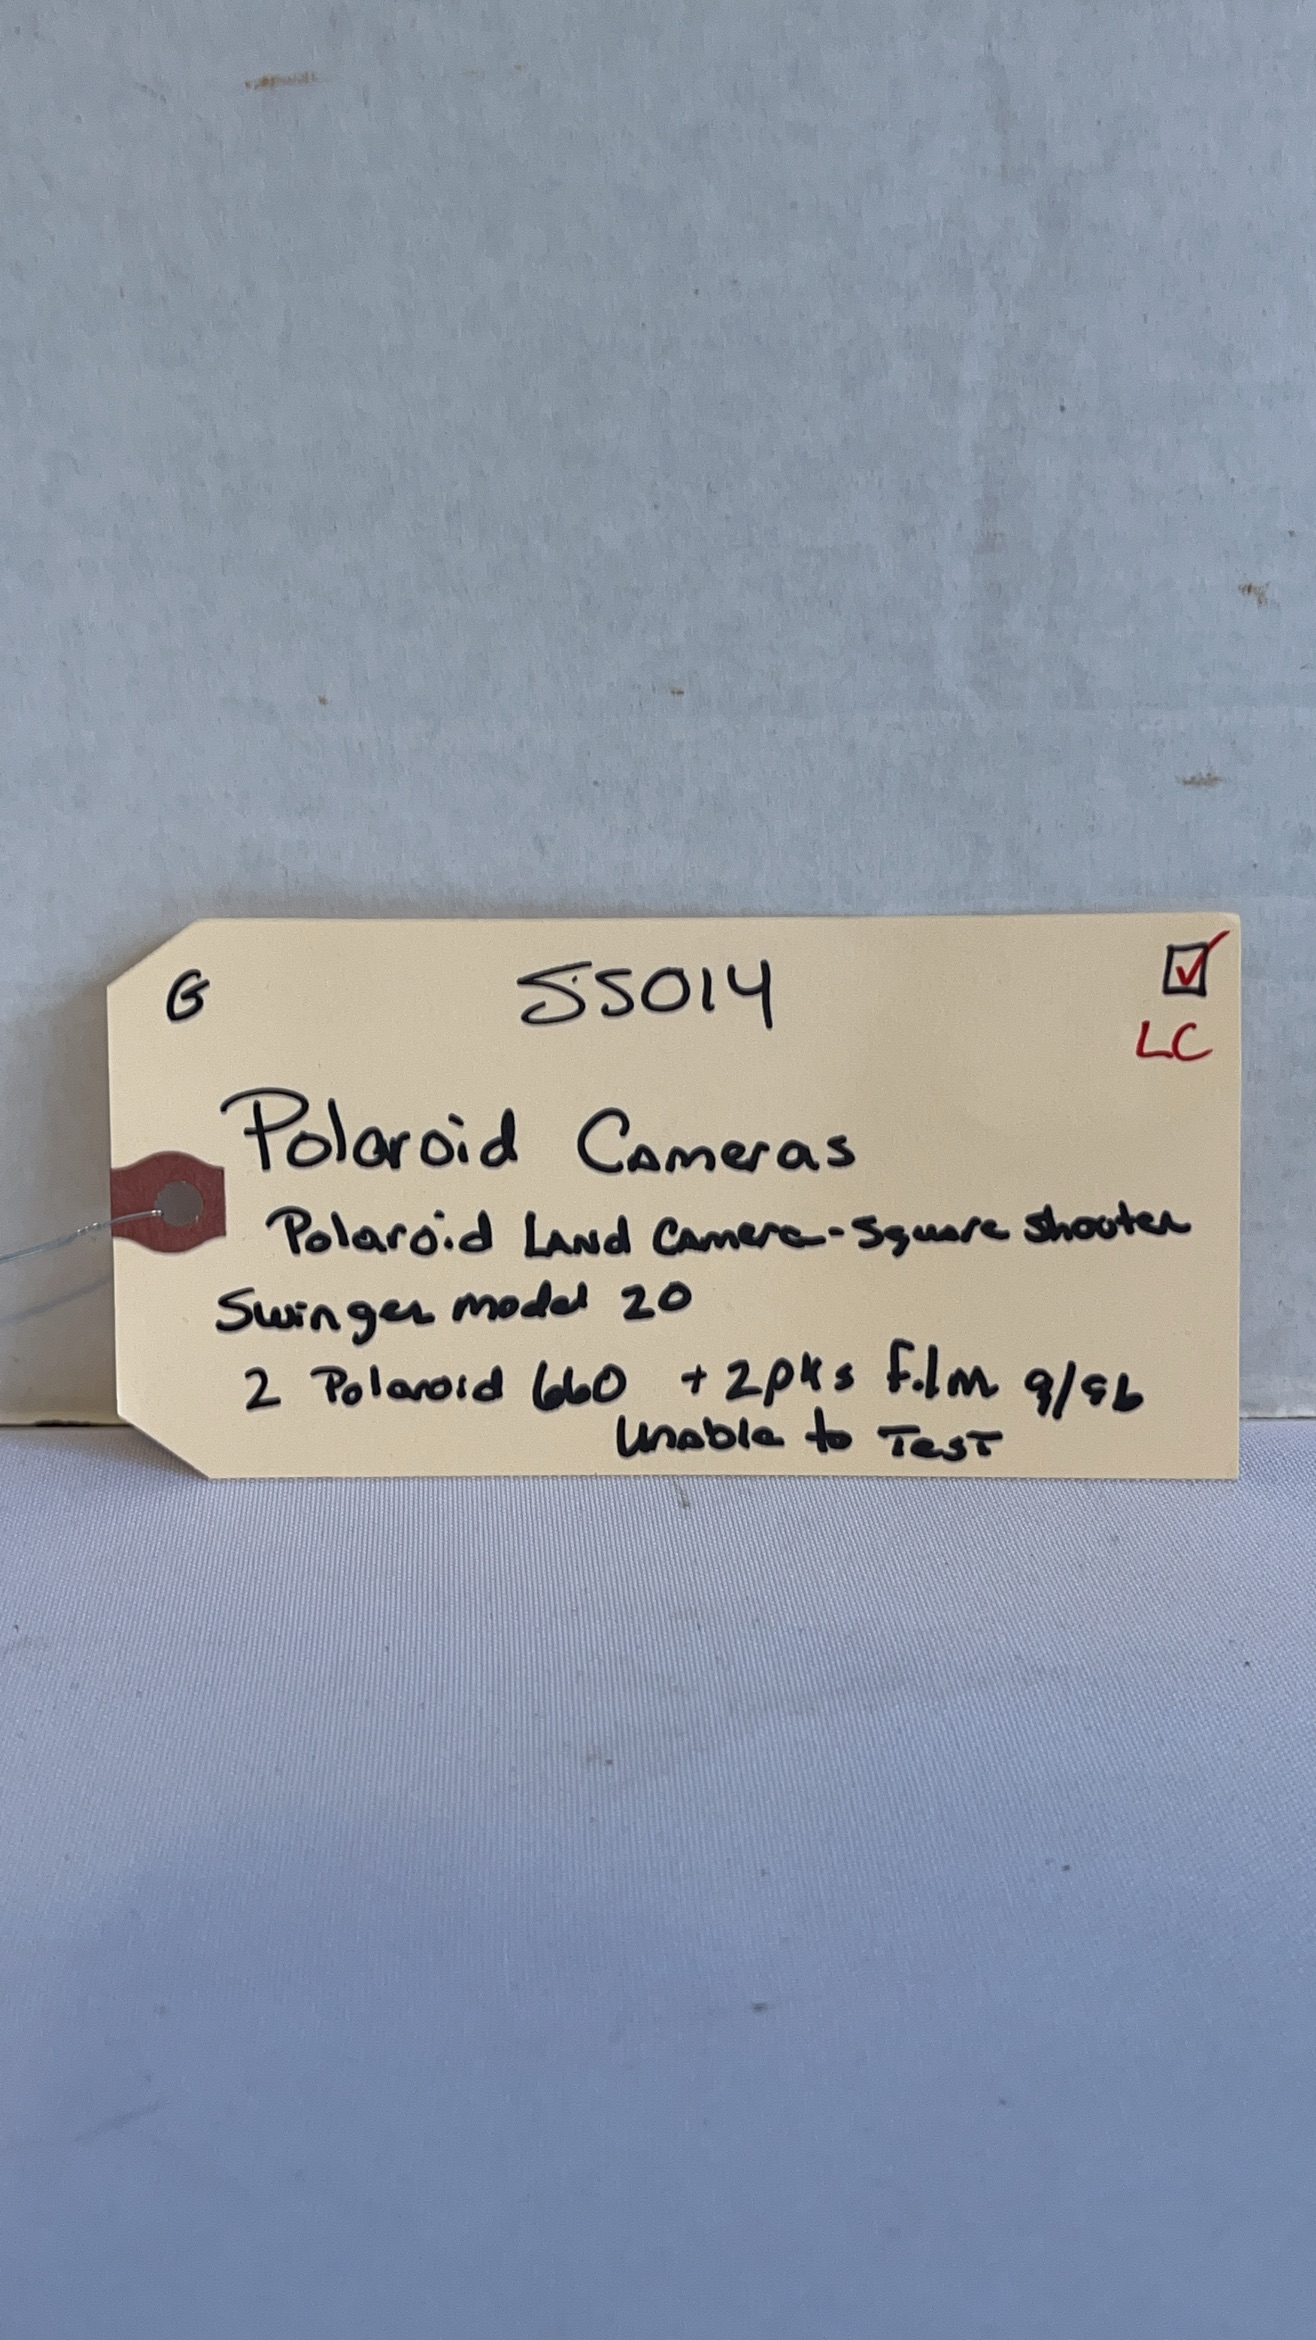 G
SS014
LC
Polaroid Cameras
Polaroid LAND Camera-Square Shooter
Swinger model 20
2 Polaroid 660 + 2pks film 9/96
Unable to Test